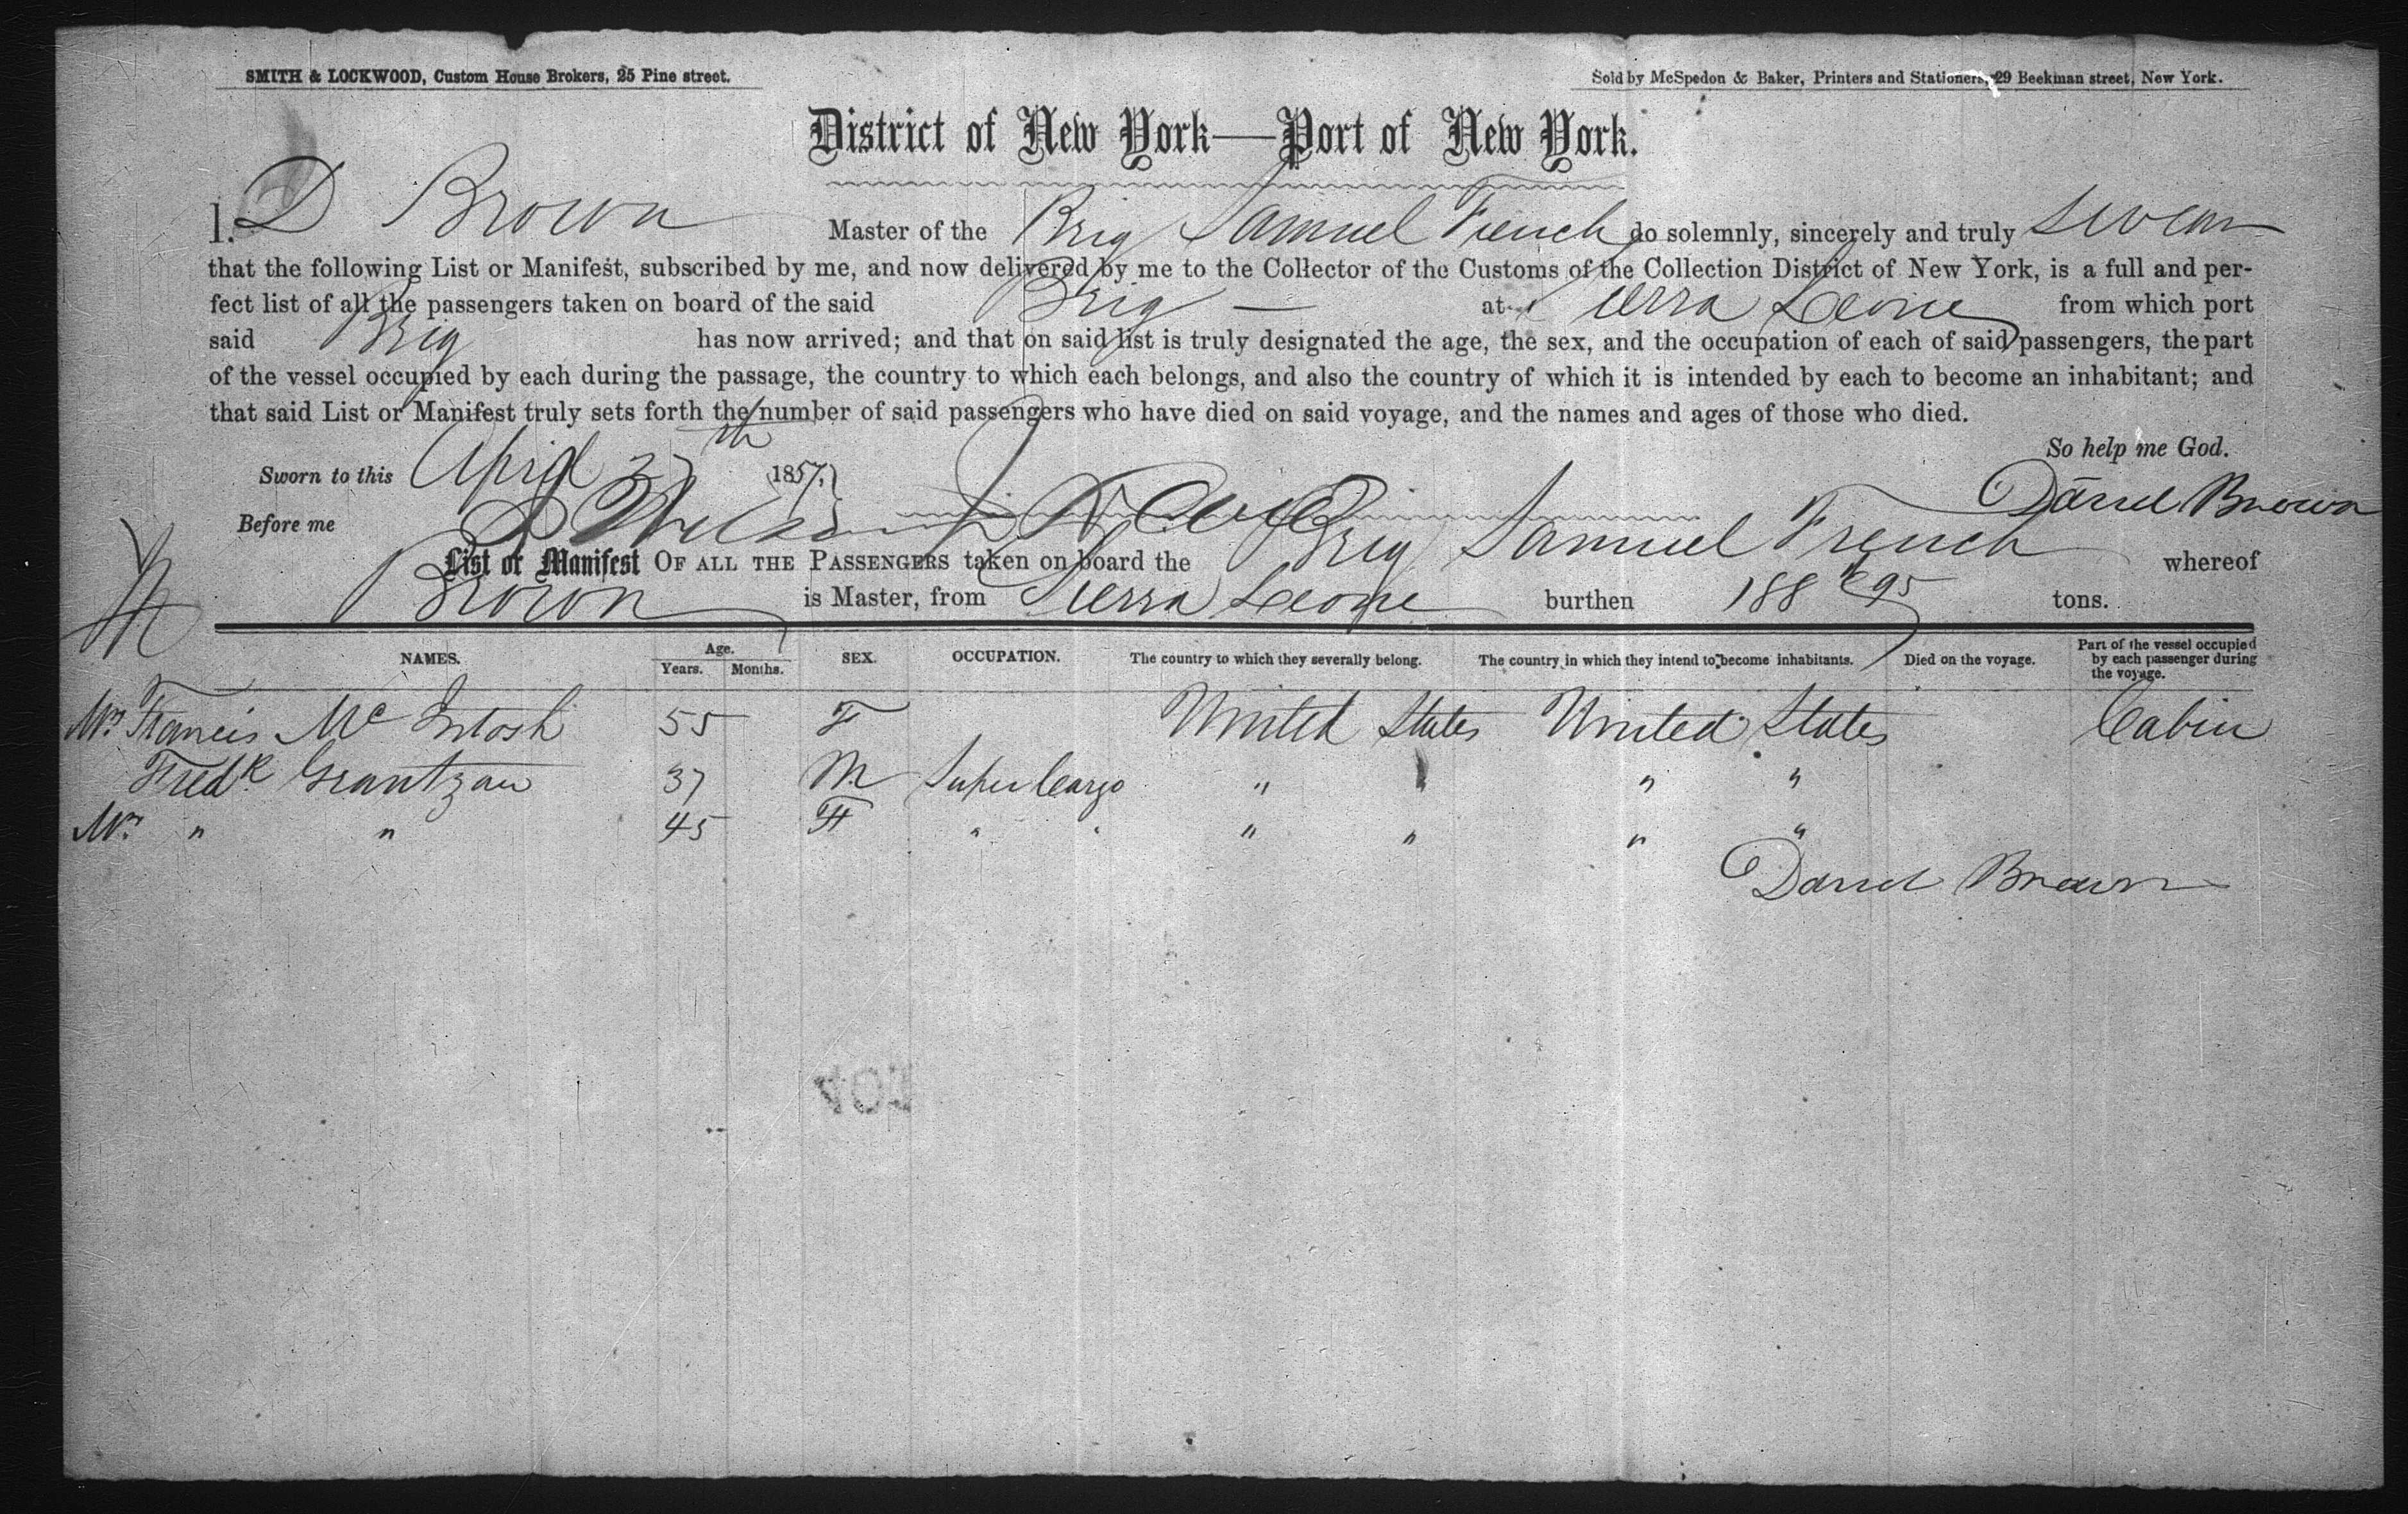 SMITH & LOCKWOOD, Custom House Brokers, 25 Pine street.
Sold by McSpedon & Baker, Printers and Stationers, 29 Beekman street, New York.
District of New York—Port of New York.
I. D Brown Master of the Brig Samuel French do solemnly, sincerely and truly swear
that the following List or Manifest, subscribed by me, and now delivered by me to the Collector of the Customs of the Collection District of New York, is a full and per-
fect list of all the passengers taken on board of the said Brig — at Sierra Leone from which port
said Brig has now arrived; and that on said list is truly designated the age, the sex, and the occupation of each of said passengers, the part
of the vessel occupied by each during the passage, the country to which each belongs, and also the country of which it is intended by each to become an inhabitant; and
that said List or Manifest truly sets forth the number of said passengers who have died on said voyage, and the names and ages of those who died.
So help me God.
Sworn to this April th 1857,
Daniel Brown
Before me
List or Manifest OF ALL THE PASSENGERS taken on board the Brig Samuel French whereof
Brown is Master, from Sierra Leone burthen 188 95 tons.
NAMES. Age. Years. Months. SEX. OCCUPATION. The country to which they severally belong. The country in which they intend to become inhabitants. Died on the voyage. Part of the vessel occupied by each passenger during the voyage.
Mrs Francis Mc Intosh 55 F United States United States Cabin
Fredk Grantzau 37 M Super Cargo " " " "
Mrs " " 45 F " " " " " "
Daniel Brown